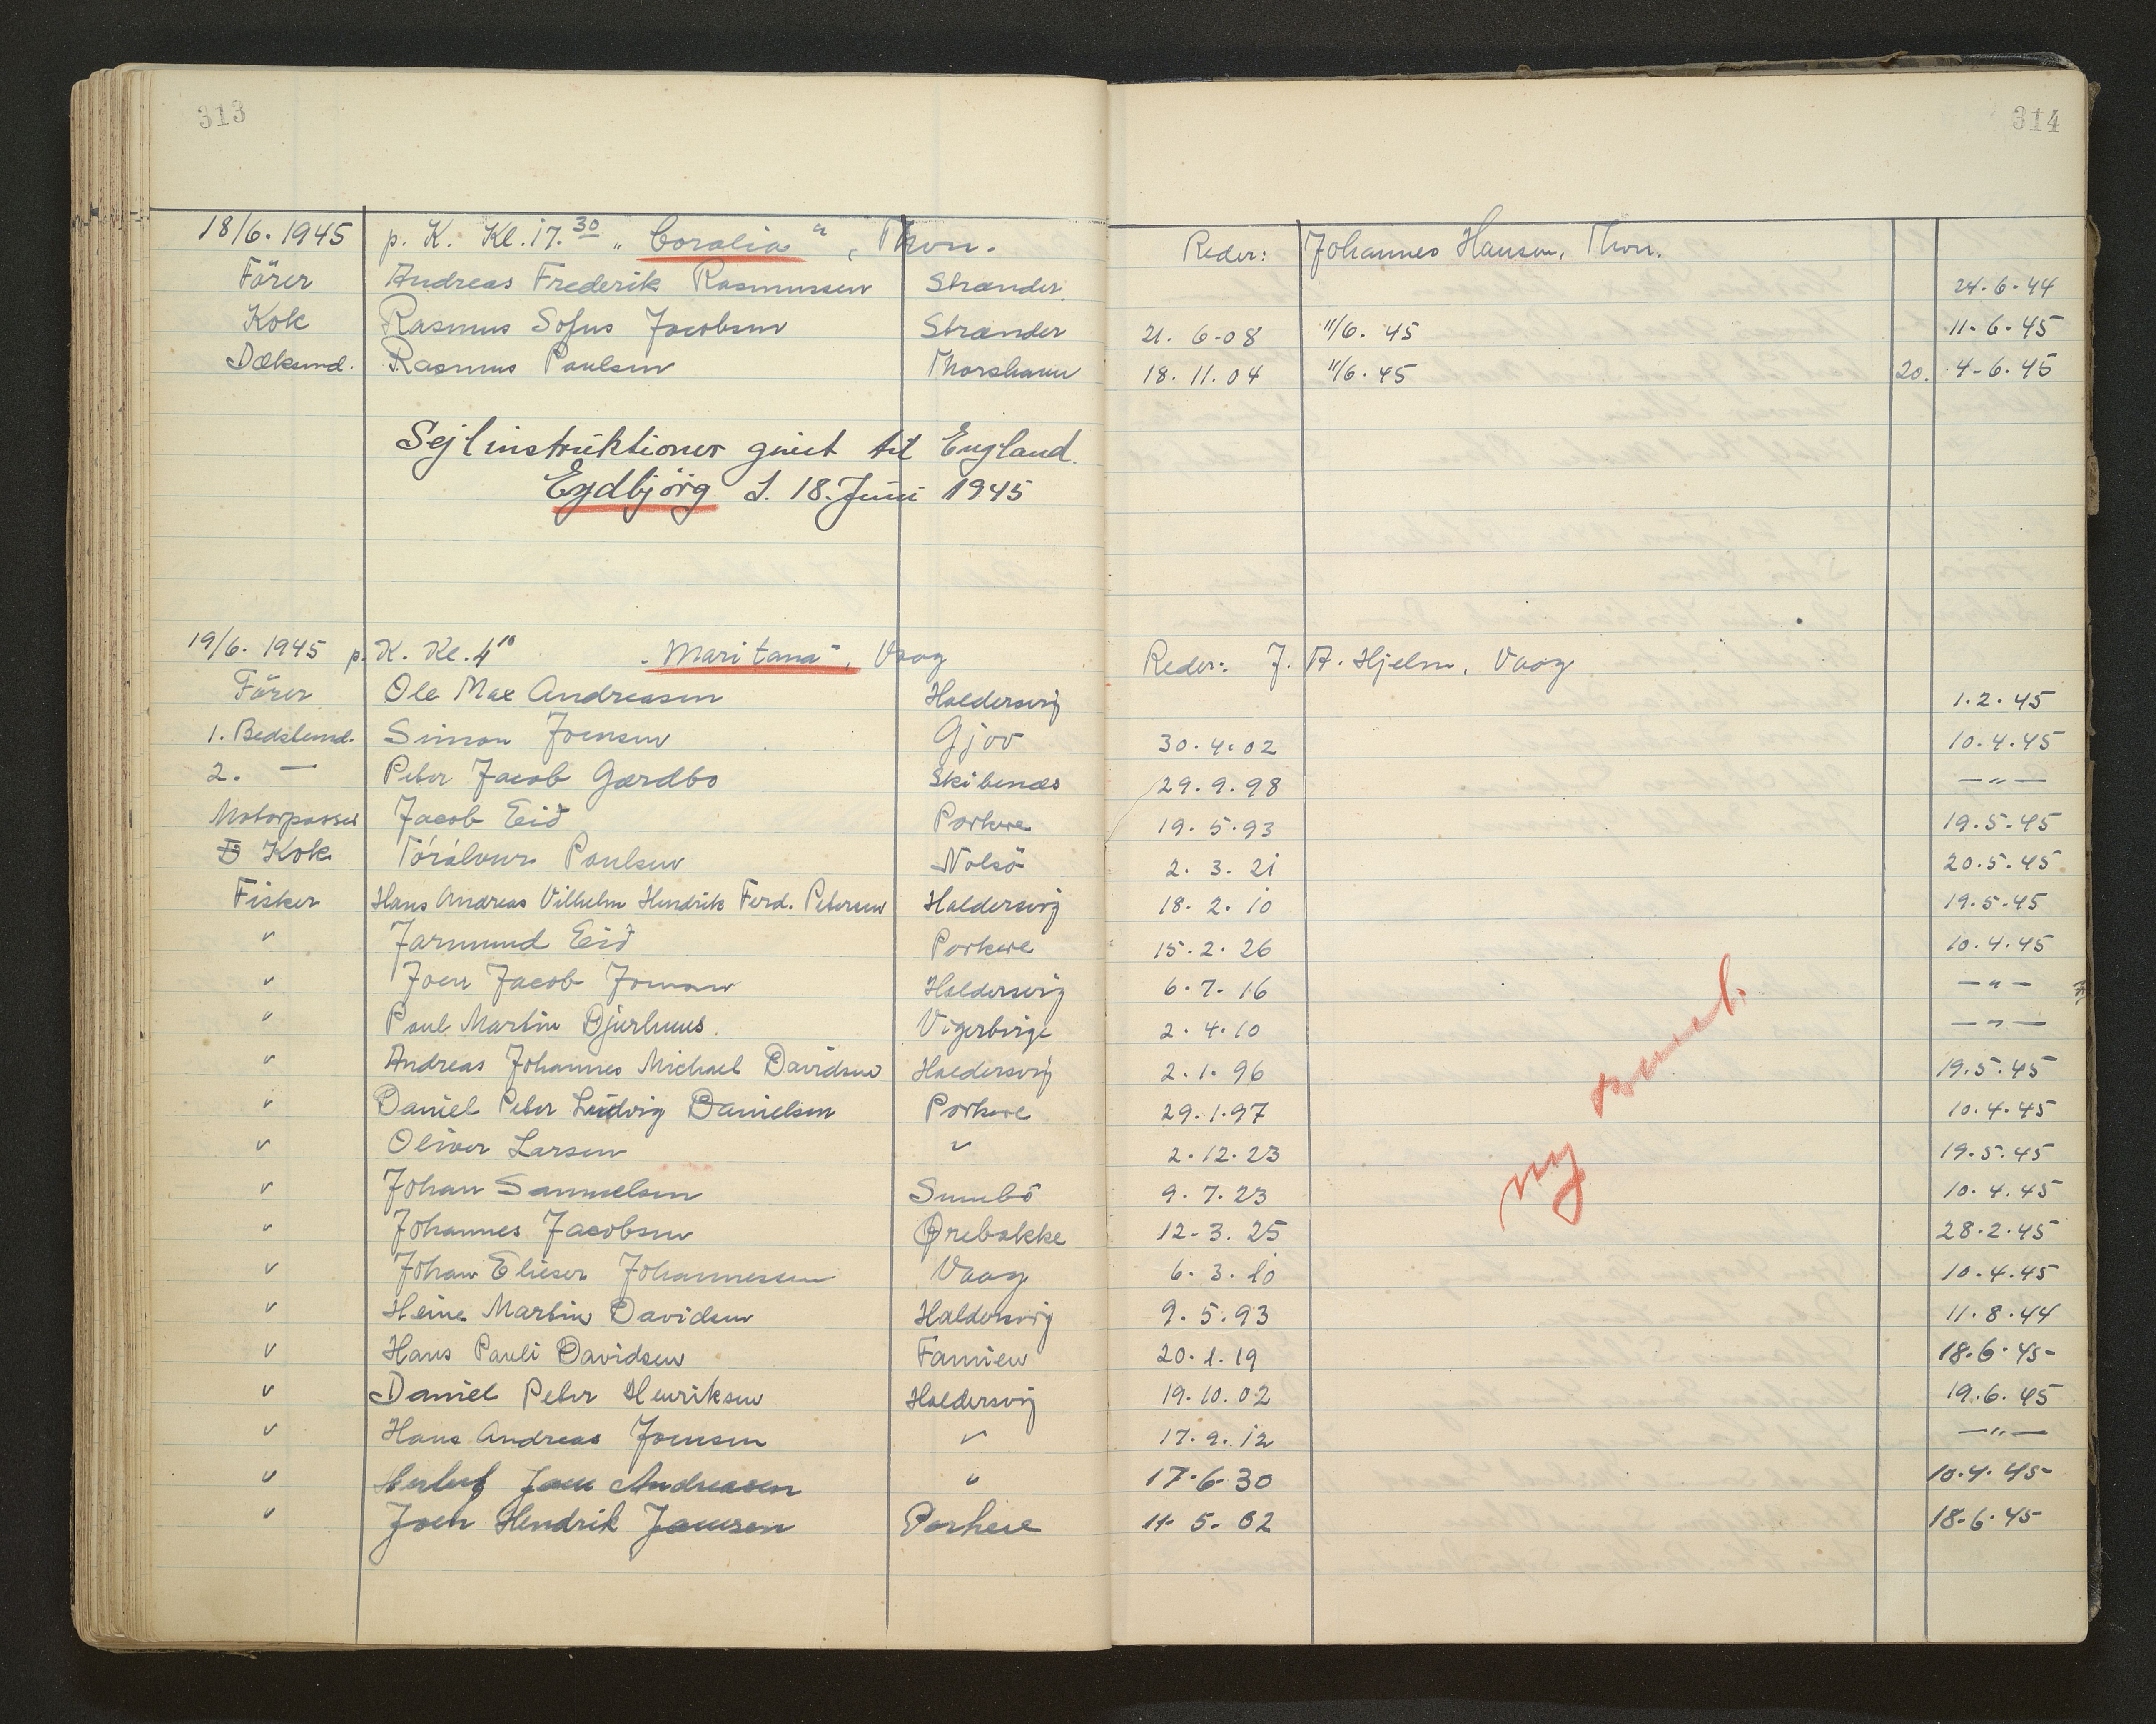 313
314
18/6. 1945 p. K. Kl. 17.30 „Coralia“, Thvn. Reder: Johannes Hansen, Thvn.
Förer Andreas Frederik Rasmussen Strænder. 24.6.44
Kok Rasmus Sofus Jacobsen Strænder 21. 6.08 11/6. 45 11.6.45
Dæksmd. Rasmus Poulsen Thorshavn 18. 11. 04 11/6. 45 20. 4-6.45
Sejlinstruktioner givet til England.
Eydbjörg d. 18. Juni 1945
19/6. 1945 p. K. Kl. 4 10 „Maritana“, Vaag Reder: J. A. Hjelm, Vaag
Förer Ole Max Andreasen Haldersvig 1.2.45
1. Bedstemd. Simon Joensen Gjov 30.4.02 10.4.45
2. — Peter Jacob Gærdbo Skibenæs 29.9.98 —"—
Motorpasser Jacob Eið Porkere 19.5.93 19.5.45
Kok Tórálvur Poulsen Nolsö 2. 3. 21 20.5.45
Fisker Hans Andreas Vilhelm Hendrik Ferd. Petersen Haldersvig 18. 2. 10 19.5.45
" Jarmund Eið Porkere 15.2.26 10.4.45
" Joen Jacob Haldersvig 6.7.16 —"—
" Poul Martin Djurhuus. Vigerbirge 2.4.10 —"—
" Andreas Johannes Michael Davidsen Haldersvig 2.1.96 19.5.45
" Daniel Peter Ludvig Danielsen Porkere 29.1.97 10.4.45
" Oliver Larsen " 2.12.23 19.5.45
" Johan Samuelsen Sumbö 9.7.23 10.4.45
" Johannes Jacobsen Ørebakke 12.3.25 28.2.45
" Johan Elieser Johannessen Vaag 6.3.10 10.4.45
" Heine Martin Davidsen Haldersvig 9.5.93 11.8.44
" Hans Pauli Davidsen Famien 20.1.19 18.6.45
" Daniel Peter Henriksen Haldersvig 19.10.02 19.6.45
" Hans Andreas Joensen " 17.9.12 —"—
" Herluf Andreasen " 17.6.30 10.4.45
" Joen Hendrik Porkere 11.5.02 18.6.45
ny